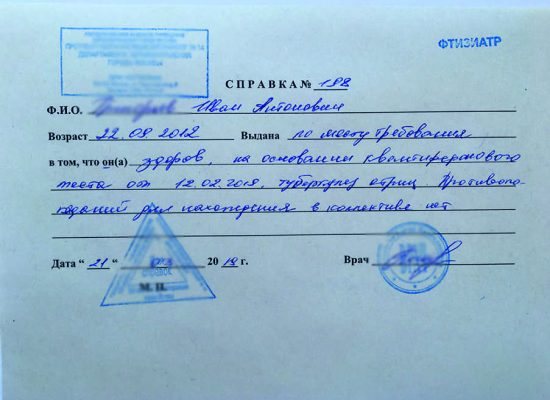 ФТИЗИАТР
СПРАВКА № 198
Ф.И.О. Иван Антонович
Возраст 22.09.2012 Выдана по месту требования
в том, что он(а) здоров, на основании квантиферонового
теста от 12.02.2019, туберкулез отриц. Противопо-
казаний для нахождения в коллективе нет
Дата “ 21 ” 2019 г. Врач
М. П.